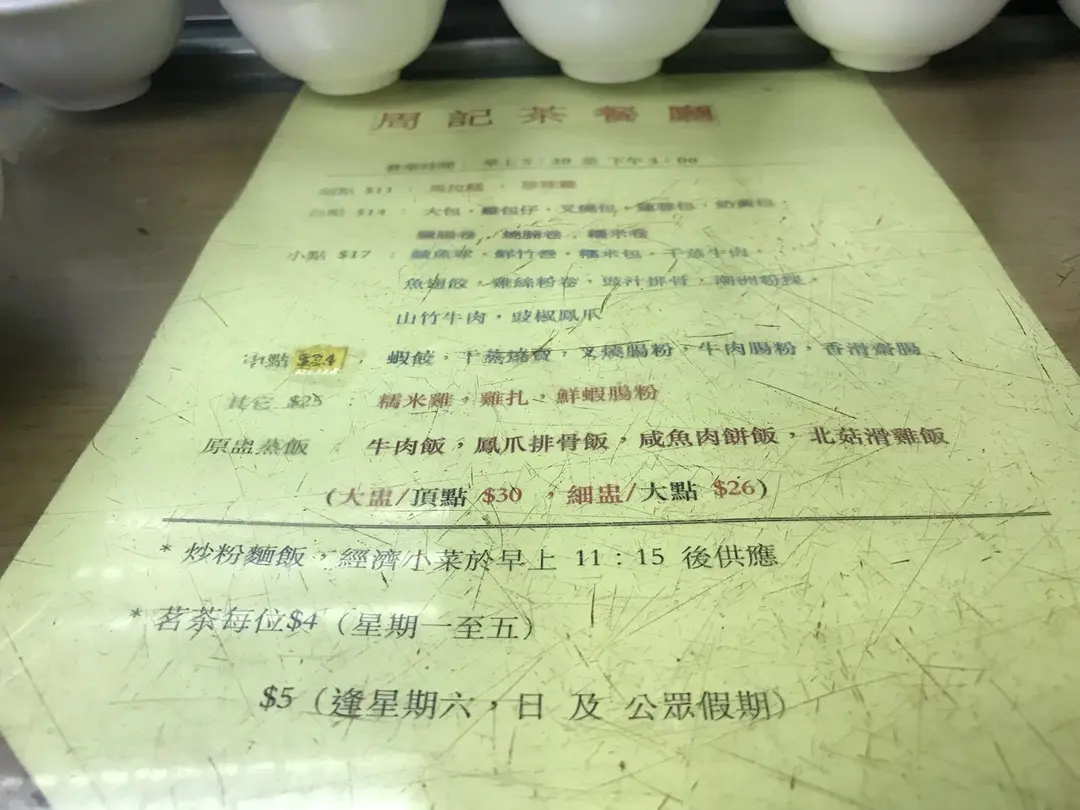 周記茶餐廳
供應時間：早上5：30 至 下午3：00
甜點 $11：馬拉糕，
包點 $14：大包，雞包仔，叉燒包，蓮蓉包，奶黃包，
腸卷，糯米卷
小點 $17：鯪魚球，鮮竹卷，糯米包，干蒸牛肉，
魚翅餃，雞絲粉卷，豉汁排骨，潮洲粉粿，
山竹牛肉，豉椒鳳爪
中點 $24：蝦餃，干蒸燒賣，叉燒腸粉，牛肉腸粉，香滑齋腸
其它 $25：糯米雞，雞扎，鮮蝦腸粉
原盅蒸飯：牛肉飯，鳳爪排骨飯，咸魚肉餅飯，北菇滑雞飯
(大盅/頂點 $30 ，細盅/大點 $26)
* 炒粉麵飯，經濟小菜於早上 11：15 後供應
* 茗茶每位$4（星期一至五）
$5（逢星期六，日 及 公眾假期）